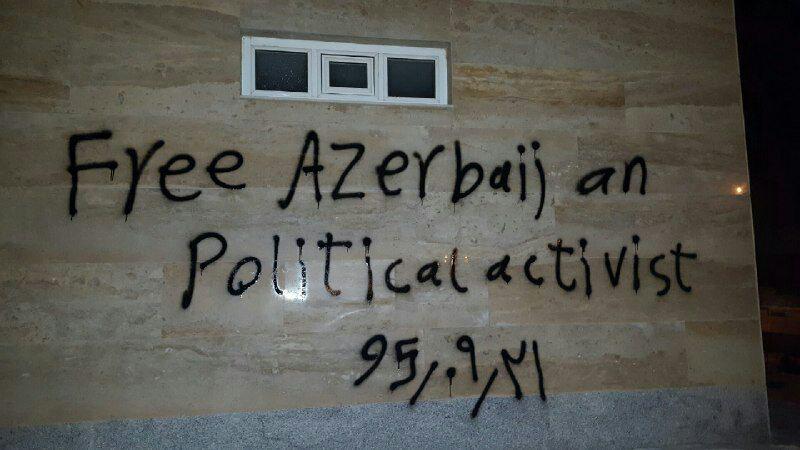 Free Azerbaijan
Political activist
95/۰۹/۲۱